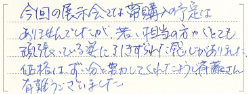 今回の展示会では購入の予定は
ありませんでしたが、若い担当の方がとても
頑張っている姿に引きずられた感じがありました。
価格はずい分と勉強してくれたようで斉藤さん
有難うございました。